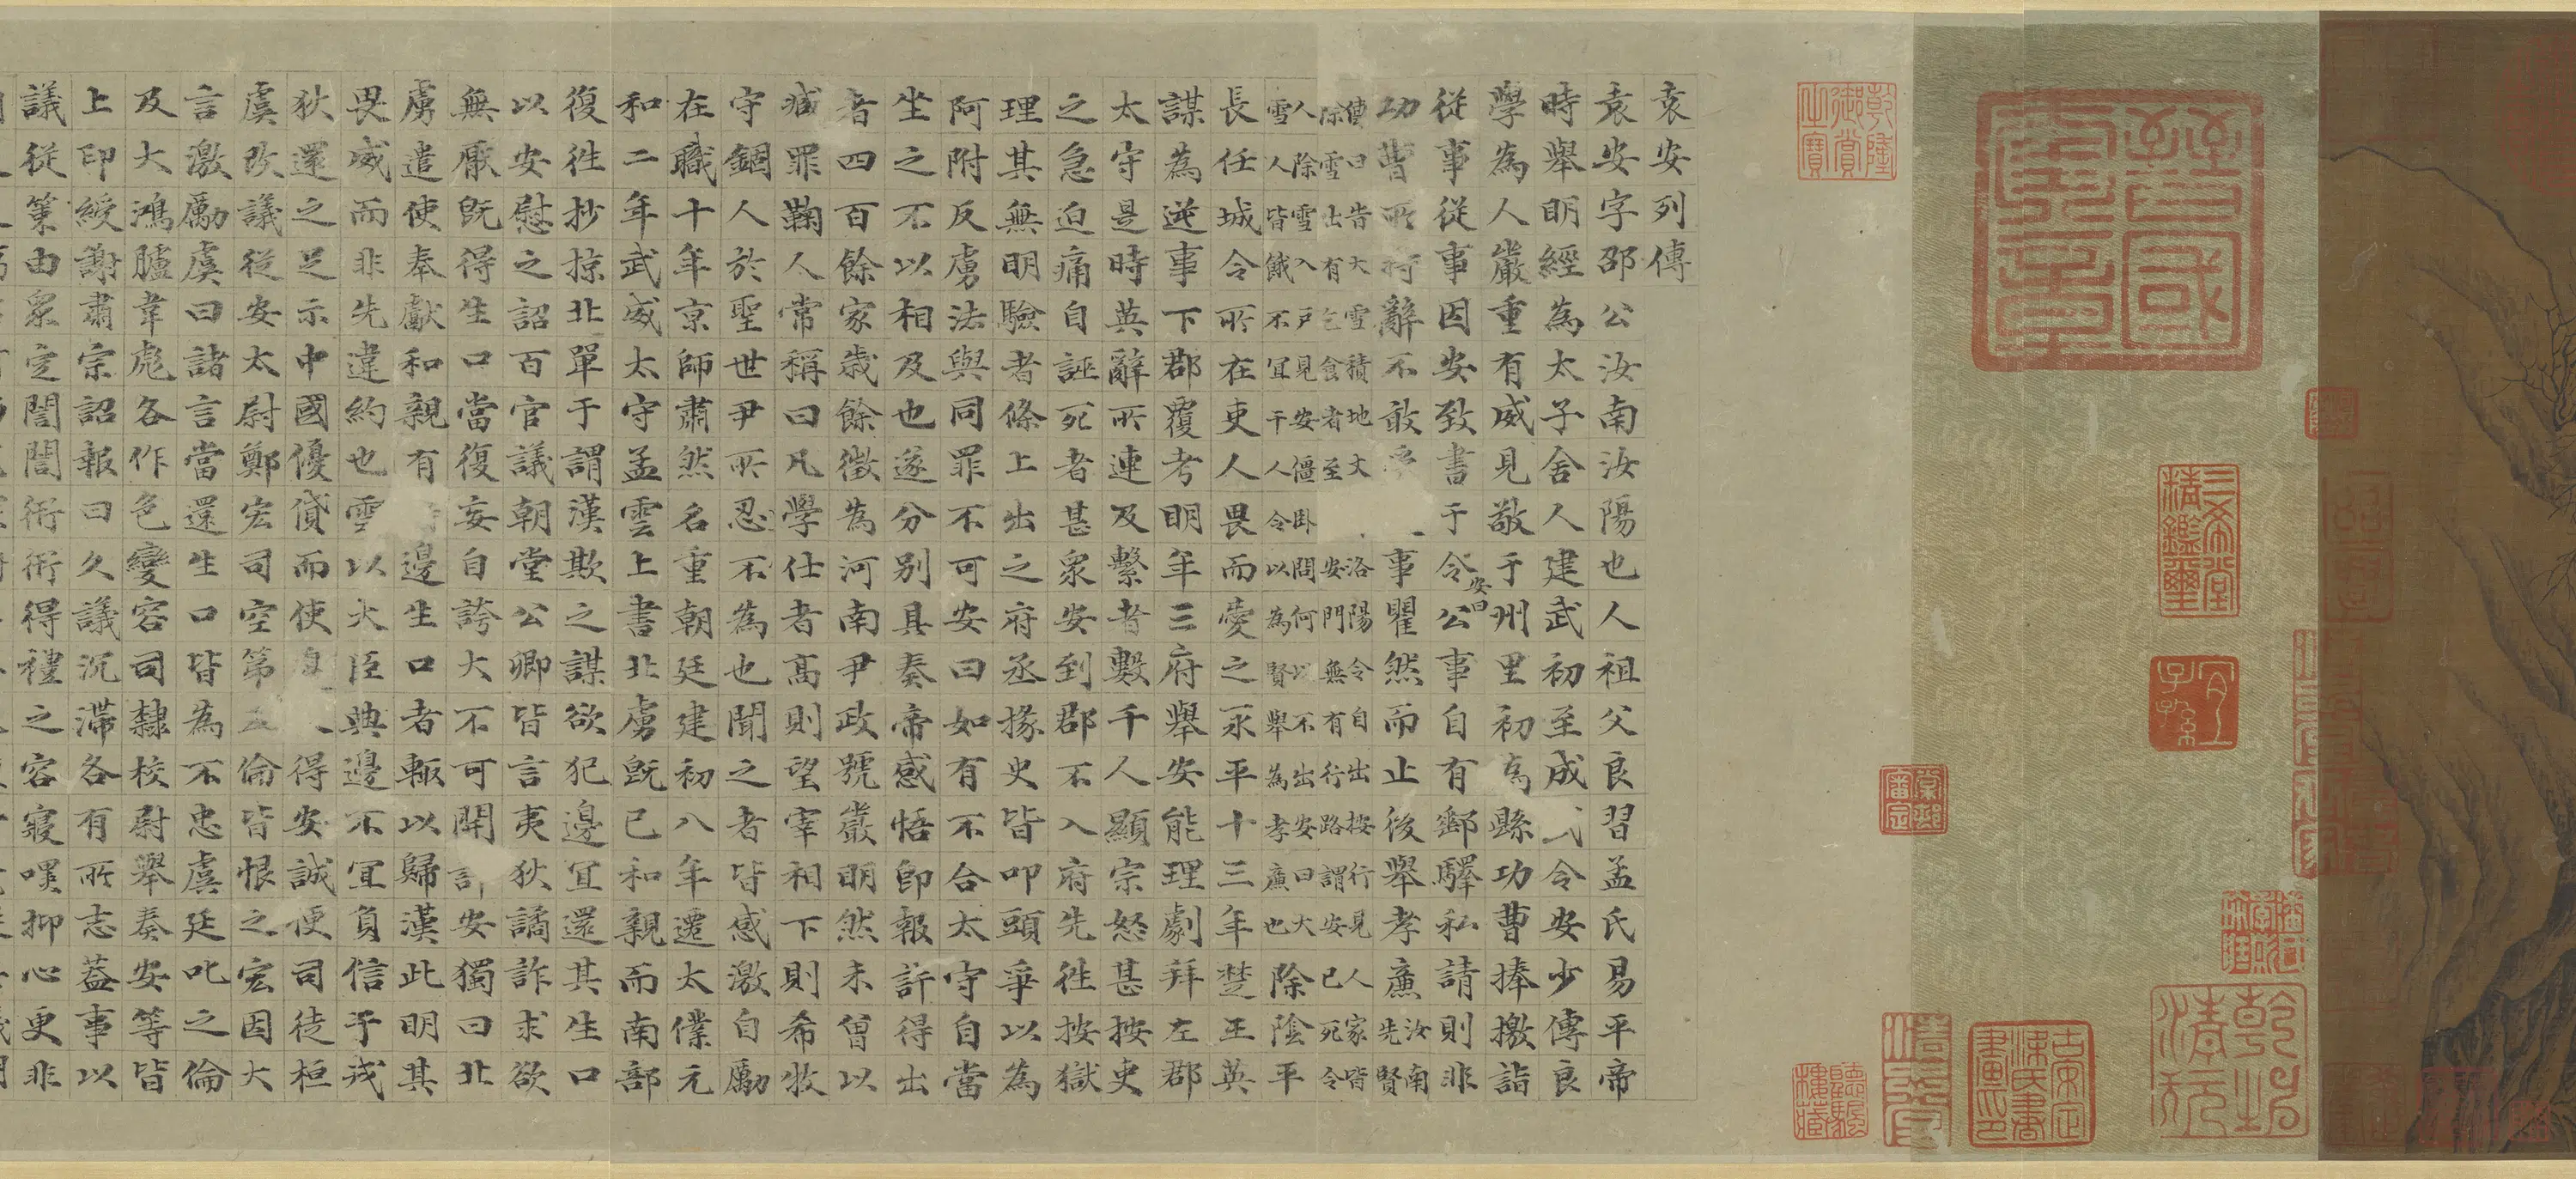 袁安列傳
袁安字邵公汝南汝陽也人祖父良習孟氏易平帝
時舉明經為太子舍人建武初至成武令安少傳良
學為人嚴重有威見敬于州里初為縣功曹捧檄詣
從事從事因安致書于令安曰公事自有郵驛私請則非
功曹所持辭不敢事瞿然而止後舉孝廉汝南先賢
傳曰告大雪積地丈洛陽令自出按行見人家皆
除雪出有乞食者至安門無有行路謂安已死令
人除雪入戶見安僵卧問何以不出安曰大
雪人皆餓不宜干人令以為賢舉為孝廉也除陰平
長任城令所在吏人畏而愛之永平十三年楚王英
謀為逆事下郡覆考明年三府舉安能理劇拜左郡
太守是時英辭所連及繫者數千人顯宗怒甚按吏
之急迫痛自誣死者甚眾安到郡不入府先往按獄
理其無明驗者條上出之府丞掾史皆叩頭爭以為
阿附反虜法與同罪不可安曰如有不合太守自當
坐之不以相及也遂分別具奏帝感悟即報許得出
者四百餘家歲餘徵為河南尹政號嚴明然未曾以
臧罪鞠人常稱曰凡學仕者高則望宰相下則希牧
守錮人於聖世尹所忍不為也聞之者皆感激自勵
在職十年京師肅然名重朝廷建初八年遷太僕元
和二年武威太守孟雲上書北虜既已和親而南部
復往抄掠北單于謂漢欺之謀欲犯邊宜還其生口
以安慰之詔百官議朝堂公卿皆言夷狄譎詐求欲
無厭既得生口當復妄自誇大不可開許安獨曰北
虜遣使奉獻和親有邊生口者輒以歸漢此明其
畏威而非先違約也雲以大臣典邊不宜負信于戎
狄還之足示中國優貸而使得安誠便司徒桓
虞改議從安太尉鄭宏司空第五倫皆恨之宏因大
言激勵虞曰諸言當還生口皆為不忠虞廷叱之倫
及大鴻臚韋彪各作色變容司隸校尉舉奏安等皆
上印綬謝肅宗詔報曰久議沉滯各有所志蓋事以
議從策由眾定誾誾衎衎得禮之容寢嘿抑心更非
乾隆御賞之寶
三希堂精鑑璽
宜子孫
棠邨審定
聽颿樓藏